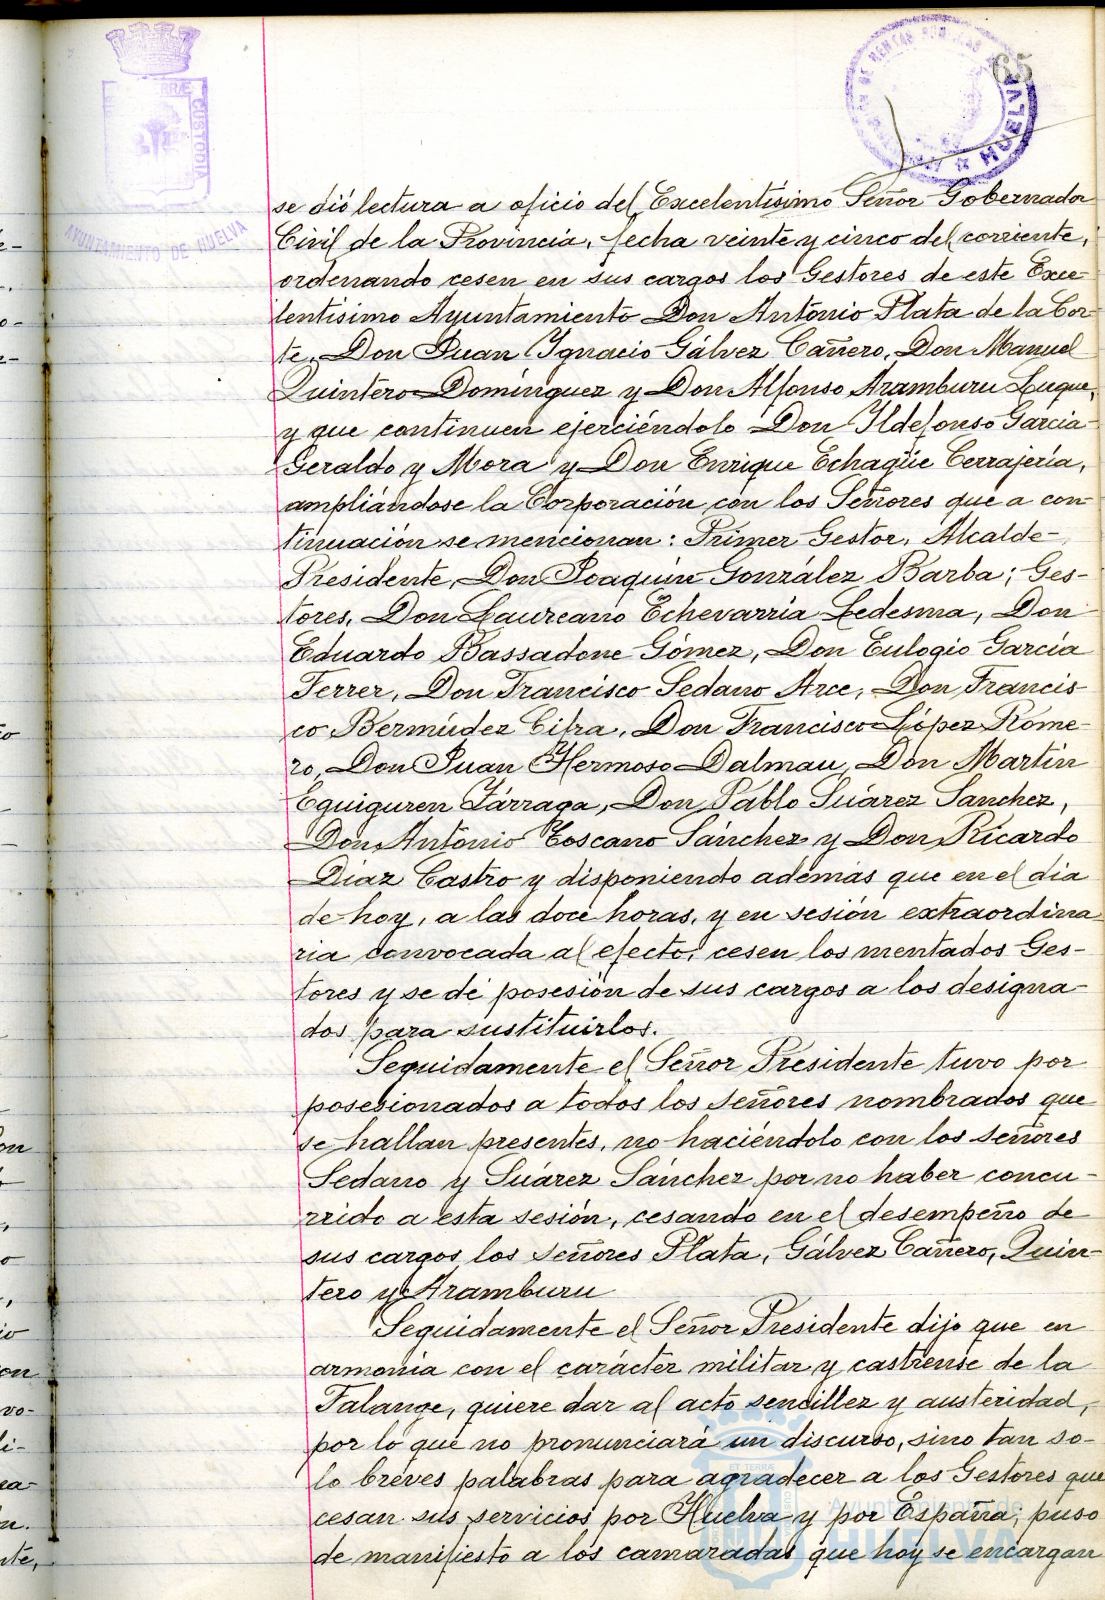 65
TERRÆ
CUSTODIA
AYUNTAMIENTO DE HUELVA
HUELVA
se dió lectura a oficio del Excelentísimo Señor Gobernador
Civil de la Provincia, fecha veinte y cinco del corriente,
ordenando cesen en sus cargos los Gestores de este Exce-
lentísimo Ayuntamiento Don Antonio Plata de la Cor-
te, Don Juan Ygnacio Gálvez Cañero, Don Manuel
Quintero Domínguez y Don Alfonso Aramburu Luque,
y que continuen ejerciéndolo Don Yldefonso García
Geraldo y Mora y Don Enrique Echagüe Cerrajería,
ampliándose la Corporación con los Señores que a con-
tinuación se mencionan: Primer Gestor, Alcalde-
Presidente, Don Joaquín González Barba; Ges-
tores, Don Laureano Echevarría Ledesma, Don
Eduardo Bassadone Gómez, Don Eulogio García
Ferrer, Don Francisco Sedano Arce, Don Francis-
co Bermúdez Cifra, Don Francisco López Rome-
ro, Don Juan Hermoso Dalmau, Don Martín
Eguiguren Yárraga, Don Pablo Suárez Sanchez,
Don Antonio Toscano Sánchez y Don Ricardo
Díaz Castro y disponiendo además que en el día
de hoy, a las doce horas, y en sesión extraordina
ria convocada al efecto, cesen los mentados Ges-
tores y se dé posesión de sus cargos a los designa-
dos para sustituirlos.
Seguidamente el Señor Presidente tuvo por
posesionados a todos los señores nombrados que
se hallan presentes, no haciéndolo con los señores
Sedano y Suárez Sánchez por no haber concu-
rrido a esta sesión, cesando en el desempeño de
sus cargos los señores Plata, Gálvez Cañero, Quin-
tero y Aramburu
Seguidamente el Señor Presidente dijo que en
armonía con el carácter militar y castrense de la
Falange, quiere dar al acto sencillez y austeridad,
por lo que no pronunciará un discurso, sino tan so-
lo breves palabras para agradecer a los Gestores que
cesan sus servicios por Huelva y por España, puso
de manifiesto a los camaradas que hoy se encargan
Ayuntamiento de
HUELVA